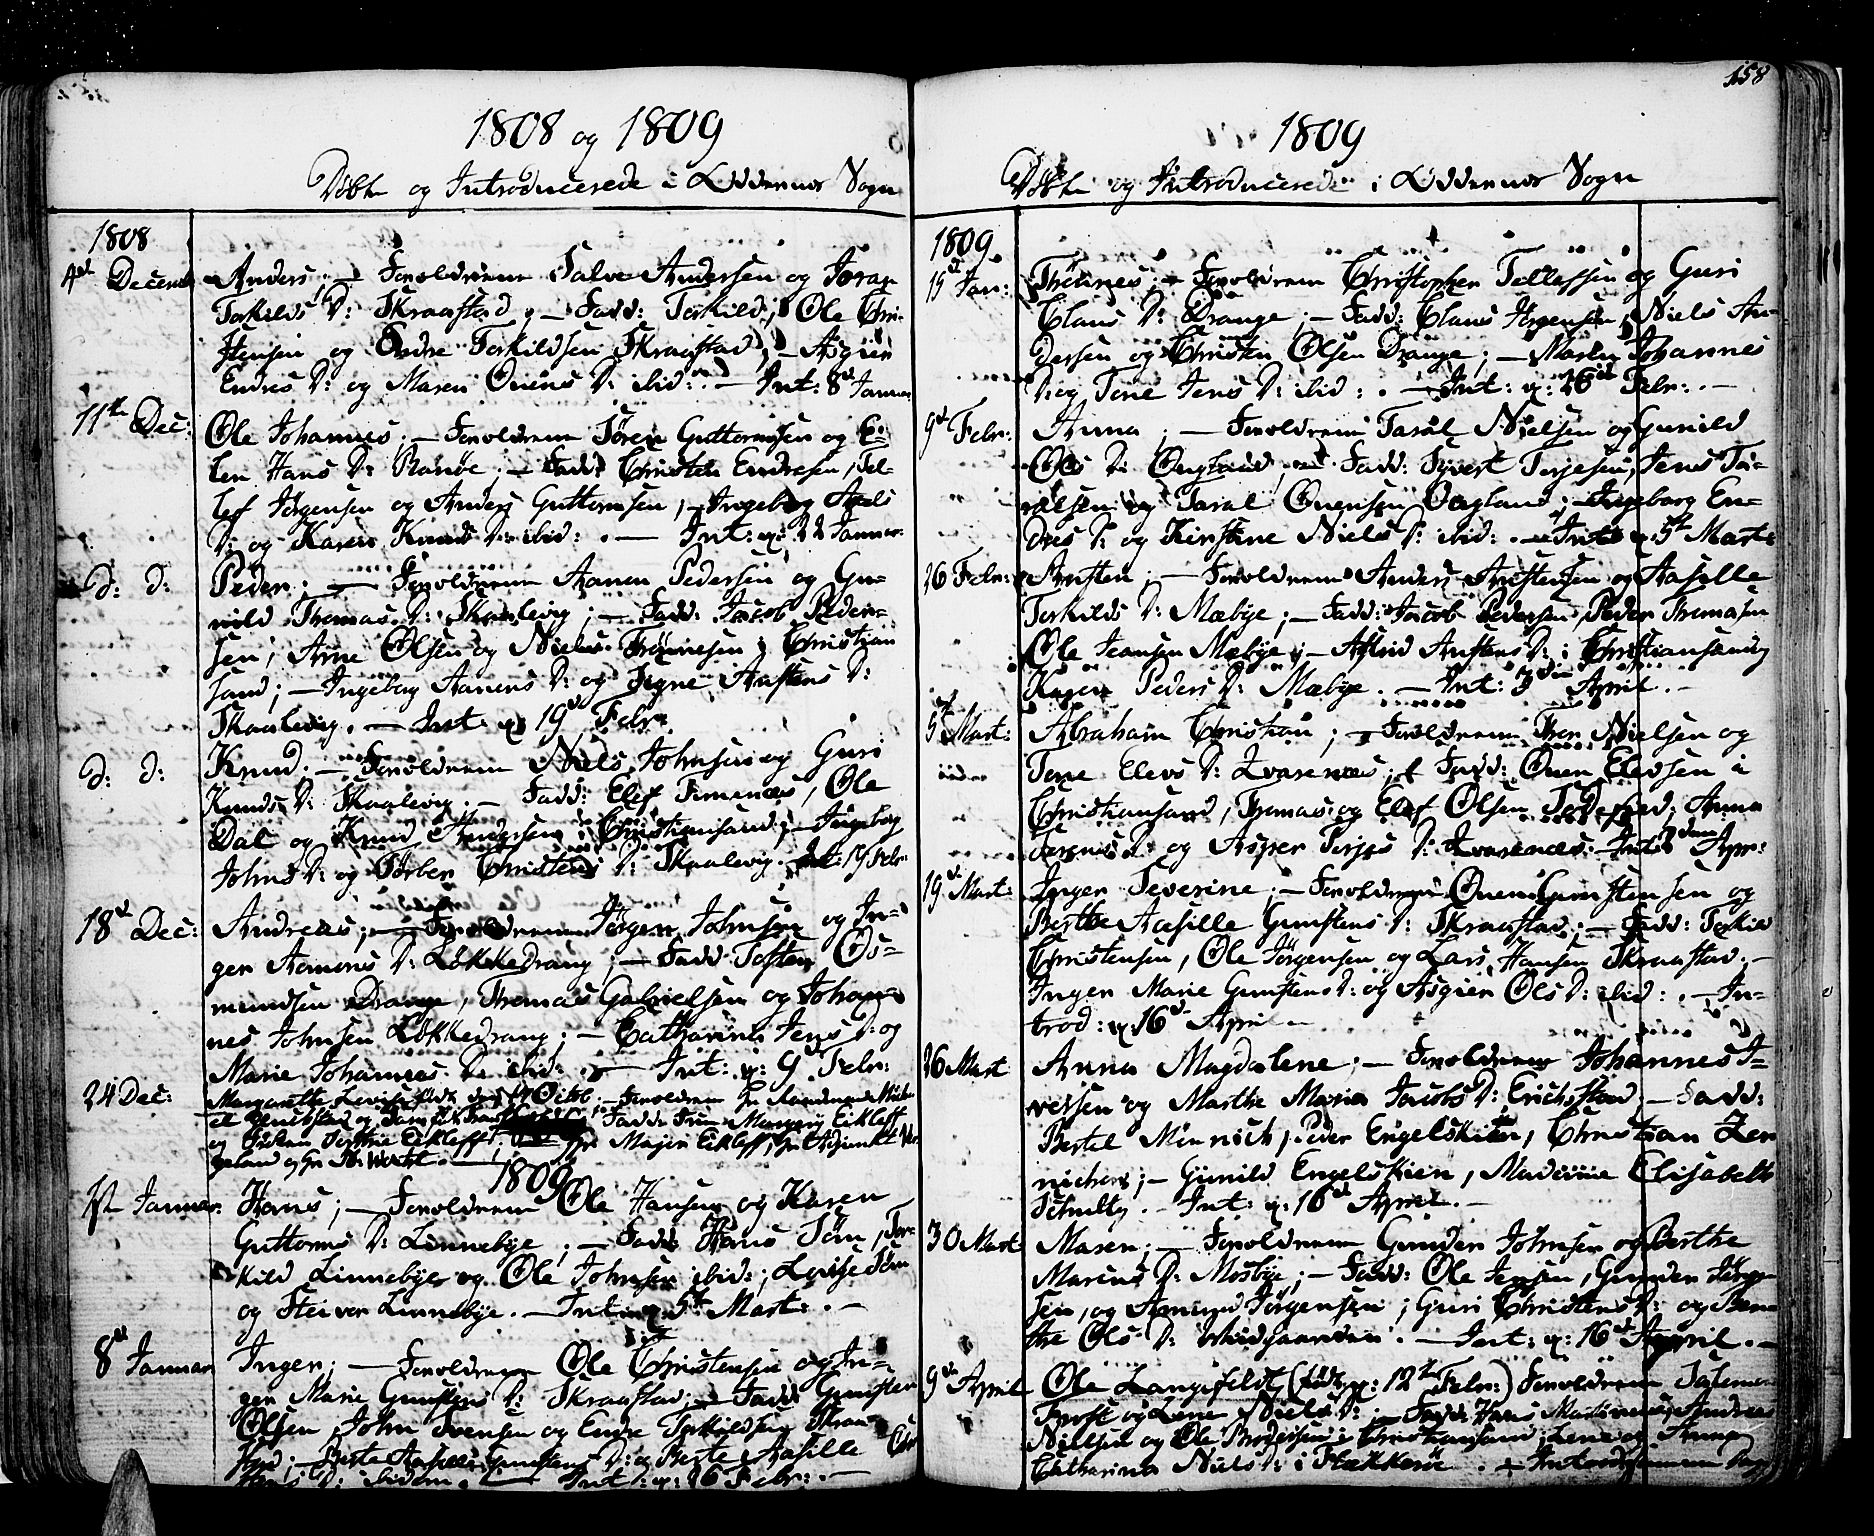 1808 og 1809
Døbte og Introducerede i Oddernes Sogn
1808
4de Decemb. Anders; — Forældrene Salve Andersen og Joran
Torkilds D: Skraastad; — Fadd: Torkild, Ole Chri-
stensen og Endre Torkildsen Skraastad; — Asgier
Endres D: og Maren Onens D: ibid: . — Int: 8de Januar
11te Dec: Ole Johannes; — Forældrene Sören Guttormsen og E-
len Hans D: Randøe; — Fadd: Christen Endresen, Tel-
lef Jörgensen og Anders Guttormsen, — Ingeborg Axels
D: og Karen Knuds D: ibid: . — Int: 22 Januar.
D: D: Peder; — Forældrene Aanen Pedersen og Gu-
nild Thomas D: Skaalevig; — Fadd: Jacob Peder-
sen, Arne Olsen og Niels Trönnesen i Christian
sand; — Ingeborg Aanens D: og Signe Austens D:
Skaalevig. — Int: 19de Febr:
D: D: Knud. — Forældrene Niels Johnsen og Guri
Knuds D: Skaalevig. — Fadd: Elef Timenæs, Ole
Dal og Knud Christiansand; — Ingeborg
Johns D: og Torber Christens D: Skaalevig. Int: 19 Febr:
18de Dec: Andreas; — Forældrene Jörgen Johnsen og In-
ger Aamons D: Løkkedrang; — Fadd: Tosten Os-
mundsen Drange, Thomas Gabrielsen og Johan-
nes Johnsen Løkkedrang; — Catharina Jens D: og
Marie Johannes D: ibid: . — Int: 9de Febr:
24 Dec: Margarethe Lovise født den Octob. — Forældre Hr
og Fadd: Frue Eikleff
og Eikleff, Hr Major Eikleff, Hr Adjunkt
geland og Hr
1809
1st Januar. Hans; — Forældrene Ole Hansen og Karen
Guttorms D: Linnebye; — Fadd: Hans Töm, Tor-
kild Linnebye og Ole Johnsen ibid:, Lovise Töm
og Steivor Linnebye. — Int: 5te Mart: . —
8de Januar Inger; — Forældrene Ole Christensen og In-
ger Marie Gunstens D: Skraastad; — Fadd: Gunsten
Olsen, John Svensen og Endre Torkildsen Skraa-
stad; — Berte Aasille Gunstens D: og Berte Aasille Ch
D: ibidem. — Int: 26 Febr: . —
158
1809
Døbte og Introducerede i Oddernes Sogn
1809.
15de Jan: Thönnes; — Forældrene Christopher Tellefsen og Guri
Claus D: Drange; — Fadd: Claus Jörgensen, Niels An-
dersen og Christen Olsen Drange; — Maren Johannes
D: og Tone Jens D: ibid: . — Int: 26de Febr: . —
9de Febr: Anna; — Forældrene Taral Nielsen og Gunild
Ols D: Ougland; — Fadd: Syvert Terjesen, Jens Ta-
ralsen og Taral Onensen Ougland; — Ingeborg En-
dres D: og Kirstine Niels D: ibid: . — Int: 5te Mart:
26 Febr: Austen; — Forældrene Anders Austensen og Aasille
Torkilds D: Mæbye; — Fadd: Jacob Pedersen, Peder Thomasen
Ole Jeansen Mæbye; — Astrid Austens D: i Christiansand og
Karen Peders D: Mæbye. — Int: 3die April. —
5te Mart: Abraham Christian; — Forældrene Thor Nielsen og
Tone Elevs D: Kvarenæs; — Fadd: Onen Elevsen i
Christiansand, Thomas og Elef Olsen Anna
D: og Asper Terjes D: Kvarenæs. — Int: 3dem Apr:
19de Mart: Inger Severine; — Forældrene Onen Gunstensen og
Berthe Aasille Gunstens D: Skraastad; — Fadd: Torkild
Christensen, Ole Jörgensen og Lars Hansen Skraastad. —
Inger Marie Gunstens D: og Asgier Ols D: ibid: . — In-
trod: 16de April —
26 Mart Anna Magdalene; — Forældrene Johannes I-
versen og Marthe Maria Jacobs D: Erichstad. — Fadd:
Bertel Minnich, Peder Engelskien, Christian Zer
nichen; — Gunild Engelskien, Madame Elisabeth
Schulty. — Int: 16de April. —
30 Mart: Maren; — Forældrene Gunder Johnsen og Berthe
Marcus D: Mosbye; — Fadd: Ole Jensen, Gunder Jörgen
sen, og Amund Jörgensen; Guri Christens D: og Ben-
the Ols D: . — Int: 16de April. —
9de April Ole Langefeldt (födt 12te Febr:) Forældrene
Frost og Lene Niels D: ; — Fadd: Hans Andreas
Nielsen og Ole i Christiansand; Lene og Anna
Catharina Niels D: i Flekkerøe. —